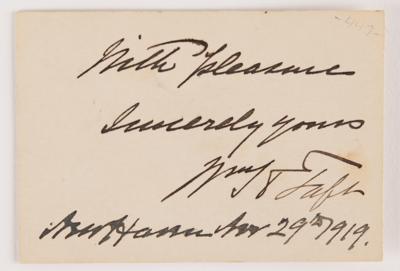 -447-
With pleasure
Sincerely yours
Wm H Taft
New Haven Nov 29th 1919.